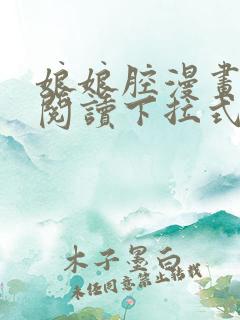 娘娘腔漫畫
閱讀下拉式
木子墨白
未任同意禁止轉載